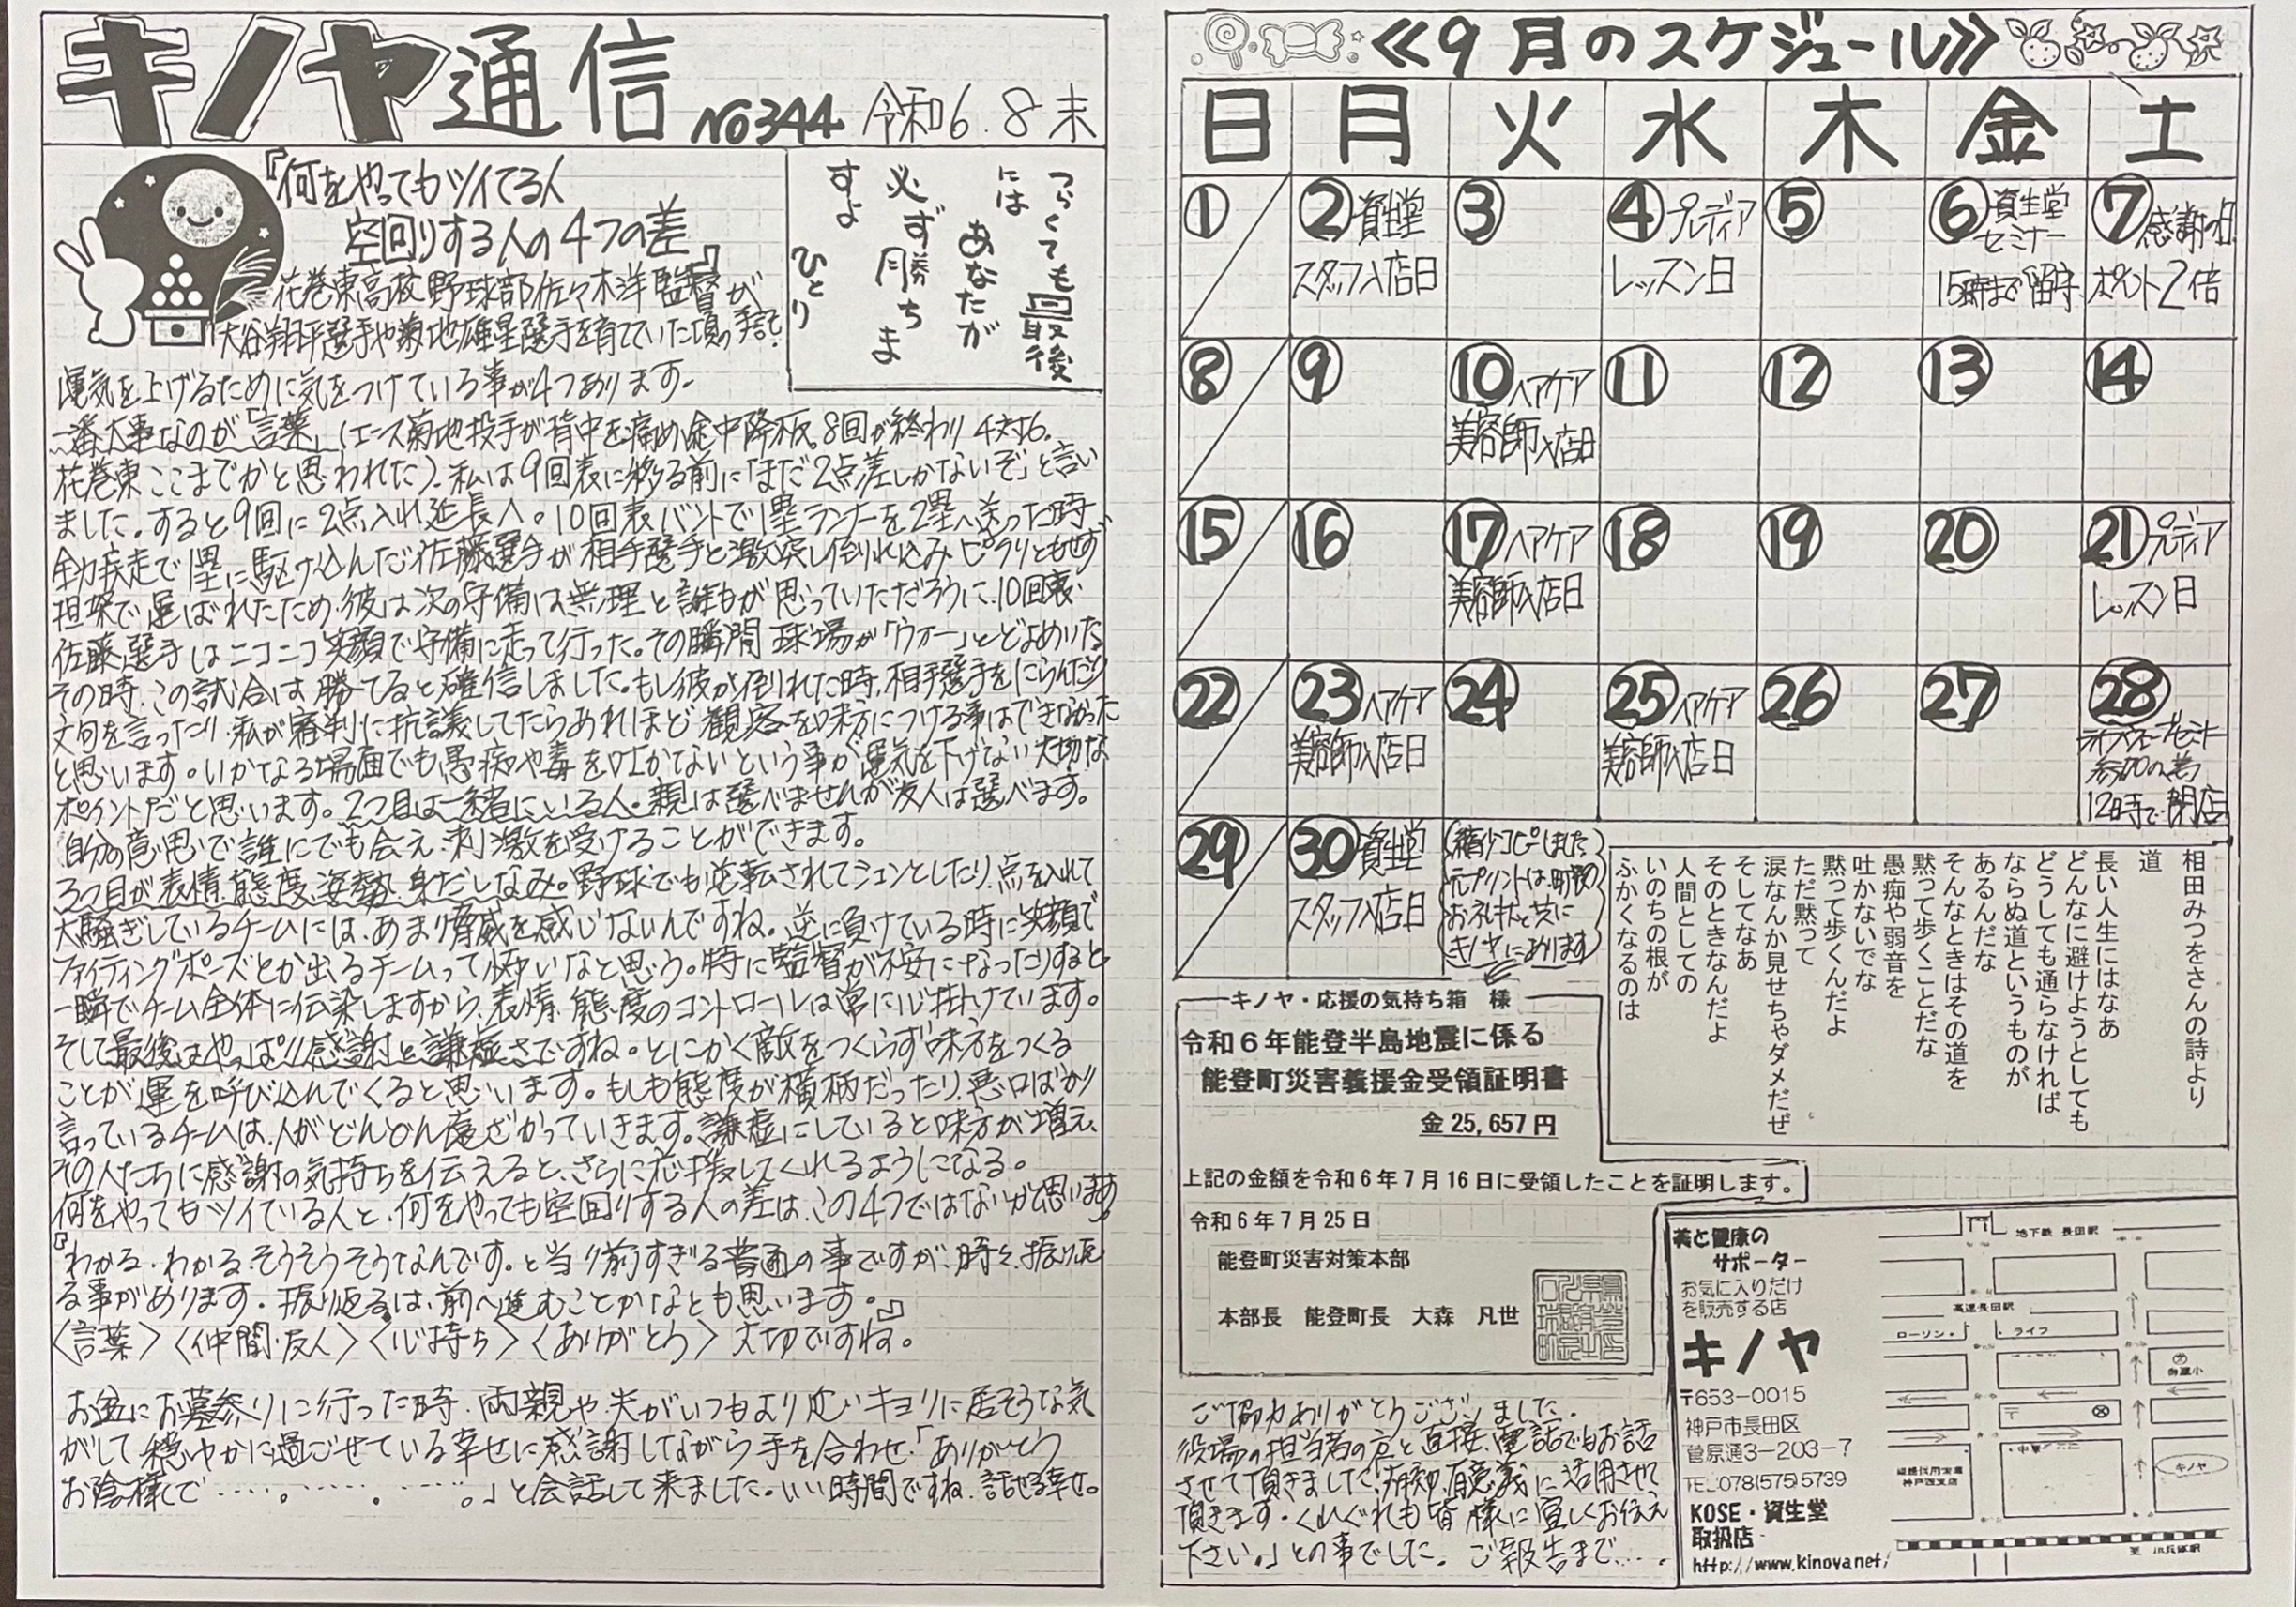 キノヤ通信 No344 令和6.8末
『何をやってもツイてる人
空回りする人の4つの差』
花巻東高校野球部佐々木洋監督が
大谷翔平選手や菊地雄星選手を育てていた頃の手記で
つらくても最後
には あなたが
必ず勝ちま
すよ
ひとり
運気を上げるために気をつけている事が4つあります。
一番大事なのが「言葉」(エース菊地投手が背中を痛め途中降板。8回が終わり4対6.
花巻東ここまでかと思われた)。私は9回表に移る前に「まだ2点差しかないぞ」と言い
ました。すると9回に2点入れ延長へ。10回表バントで1塁ランナーを2塁へ送った時
全力疾走で1塁に駆け込んだ佐藤選手が相手選手と激突し倒れ込みピクリともせず
担架で運ばれたため、彼は次の守備は無理と誰もが思っていただろうに、10回裏、
佐藤選手はニコニコ笑顔で守備に走って行った。その瞬間球場が「ウォー」とどよめいた。
その時、この試合は勝てると確信しました。もし彼が倒れた時、相手選手をにらんだり
文句を言ったり、私が審判に抗議してたらあれほど観客を味方につける事はできなかった
と思います。いかなる場面でも愚痴や毒を吐かないという事が運気を下げない大切な
ポイントだと思います。2つ目は一緒にいる人。親は選べませんが友人は選べます。
自分の意思で誰にでも会え、刺激を受けることができます。
3つ目が表情、態度、姿勢、身だしなみ。野球でも逆転されてシュンとしたり、点を入れて
大騒ぎしているチームには、あまり脅威を感じないんですね。逆に負けている時に笑顔で
ファイティングポーズとか出るチームって怖いなと思う。特に監督が不安になったりすると
一瞬でチーム全体に伝染しますから、表情、態度のコントロールは常に心掛けています。
そして最後はやっぱり感謝と謙虚さですね。とにかく敵をつくらず味方をつくる
ことが運を呼び込んでくると思います。もしも態度が横柄だったり、悪口ばかり
言っているチームは、人がどんどん遠ざかっていきます。謙虚にしていると味方が増え、
その人たちに感謝の気持ちを伝えると、さらに応援してくれるようになる。
何をやってもツイている人と、何をやっても空回りする人の差は、この4つではないかと思います
『わかる、わかる、そうそうそうなんです。と当り前すぎる普通の事ですが、時々、振り返
る事があります。振り返るは、前へ進むことかなとも思います。』
〈言葉〉〈仲間・友人〉〈心持ち〉〈ありがとう〉大切ですね。
お盆にお墓参りに行った時、両親や夫がいつもより近いキョリに居そうな気
がして穏やかに過ごせている幸せに感謝しながら手を合わせ、「ありがとう
お陰様で……。……。……。」と会話して来ました。いい時間ですね、話せる幸せ。
≪9月のスケジュール≫
日 月 火 水 木 金 土
① ②資生堂 ③ ④プレディア ⑤ ⑥資生堂セミナー ⑦感謝の日
スタッフ入店日 レッスン日 15時まで留守 ポイント2倍
⑧ ⑨ ⑩ヘアケア ⑪ ⑫ ⑬ ⑭
美容師入店日
⑮ ⑯ ⑰ヘアケア ⑱ ⑲ ⑳ ㉑プレディア
美容師入店日 レッスン日
㉒ ㉓ヘアケア ㉔ ㉕ヘアケア ㉖ ㉗ ㉘
美容師入店日 美容師入店日
参加の為
12時で閉店
㉙ ㉚資生堂
スタッフ入店日
(縮少コピーしました
元プリントは、町長の
お礼状と共に
キノヤにあります)
相田みつをさんの詩より
道
長い人生にはなあ
どんなに避けようとしても
どうしても通らなければ
ならぬ道というものが
あるんだな
そんなときはその道を
黙って歩くことだな
愚痴や弱音を
吐かないでな
黙って歩くんだよ
ただ黙って
涙なんか見せちゃダメだぜ
そしてなあ
そのときなんだよ
人間としての
いのちの根が
ふかくなるのは
キノヤ・応援の気持ち箱 様
令和6年能登半島地震に係る
能登町災害義援金受領証明書
金25,657円
上記の金額を令和6年7月16日に受領したことを証明します。
令和6年7月25日
能登町災害対策本部
本部長 能登町長 大森 凡世
ご協力ありがとうございました。
役場の担当者の方と直接、電話でもお話
させて頂きました。「有効、有意義に活用させて
頂きます。くれぐれも皆様に宜しくお伝え
下さい。」との事でした。ご報告まで….
美と健康の
サポーター
お気に入りだけ
を販売する店
キノヤ
〒653-0015
神戸市長田区
菅原通3-203-7
TEL078(575)5739
KOSE・資生堂
取扱店
http://www.kinoya.net/
地下鉄 長田駅
高速長田駅
ローソン ・ライフ
御蔵小
〒
・中華
キノヤ
至 JR兵庫駅